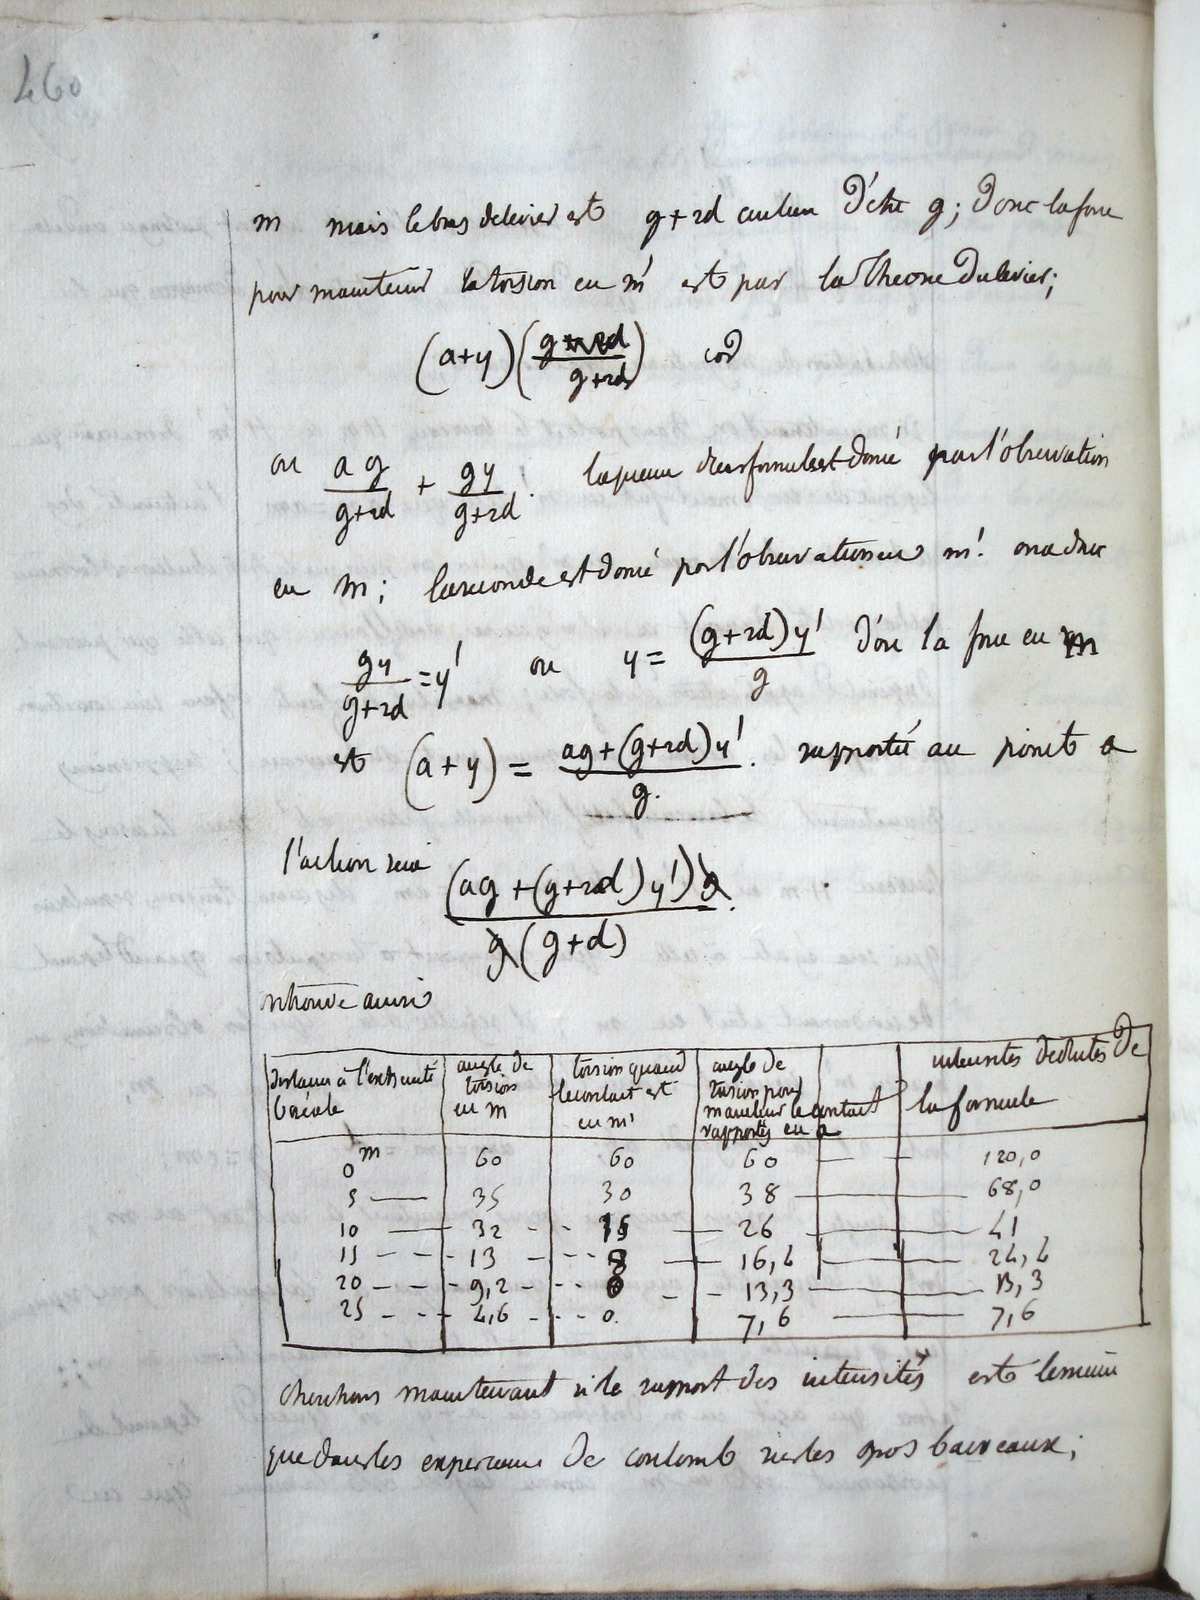 460
m mais le bras de levier est g+2d au lieu d'être g; donc la force
pour maintenir la torsion en m' est par la theorie du levier;
(a+y)(g/g+2d)
ou ag/g+2d + gy/g+2d. la formule est donné par l'observation
en m; la seconde est donné par l'observation en m'. on a donc
gy/g+2d = y' ou y = (g+2d)y'/g d'ou la force en m
est (a+y) = ag+(g+2d)y'/g. rapporté au point a
l'action sera (ag+(g+2d)y')g/g(g+d)
on trouve ainsi
distance à l'extremité boréale | angle de torsion en m | torsion quand le contact est en m' | angle de torsion pour maintenir le contact rapportés en a | intensités deduites de la formule
0m 60 60 60 120,0
5 — 35 30 38 — 68,0
10 — 32 - - 15 — 26 — 41
15 - - - 13 - - - 8 — 16,4 — 24,4
20 - - - 9,2 - - - 6 - - 13,3 — 13,3
25 - - - 4,6 - - - 0. 7,6 — 7,6
cherchons maintenant si le rapport des intensités est le même
que dans les experiences de coulomb sur les gros barreaux;